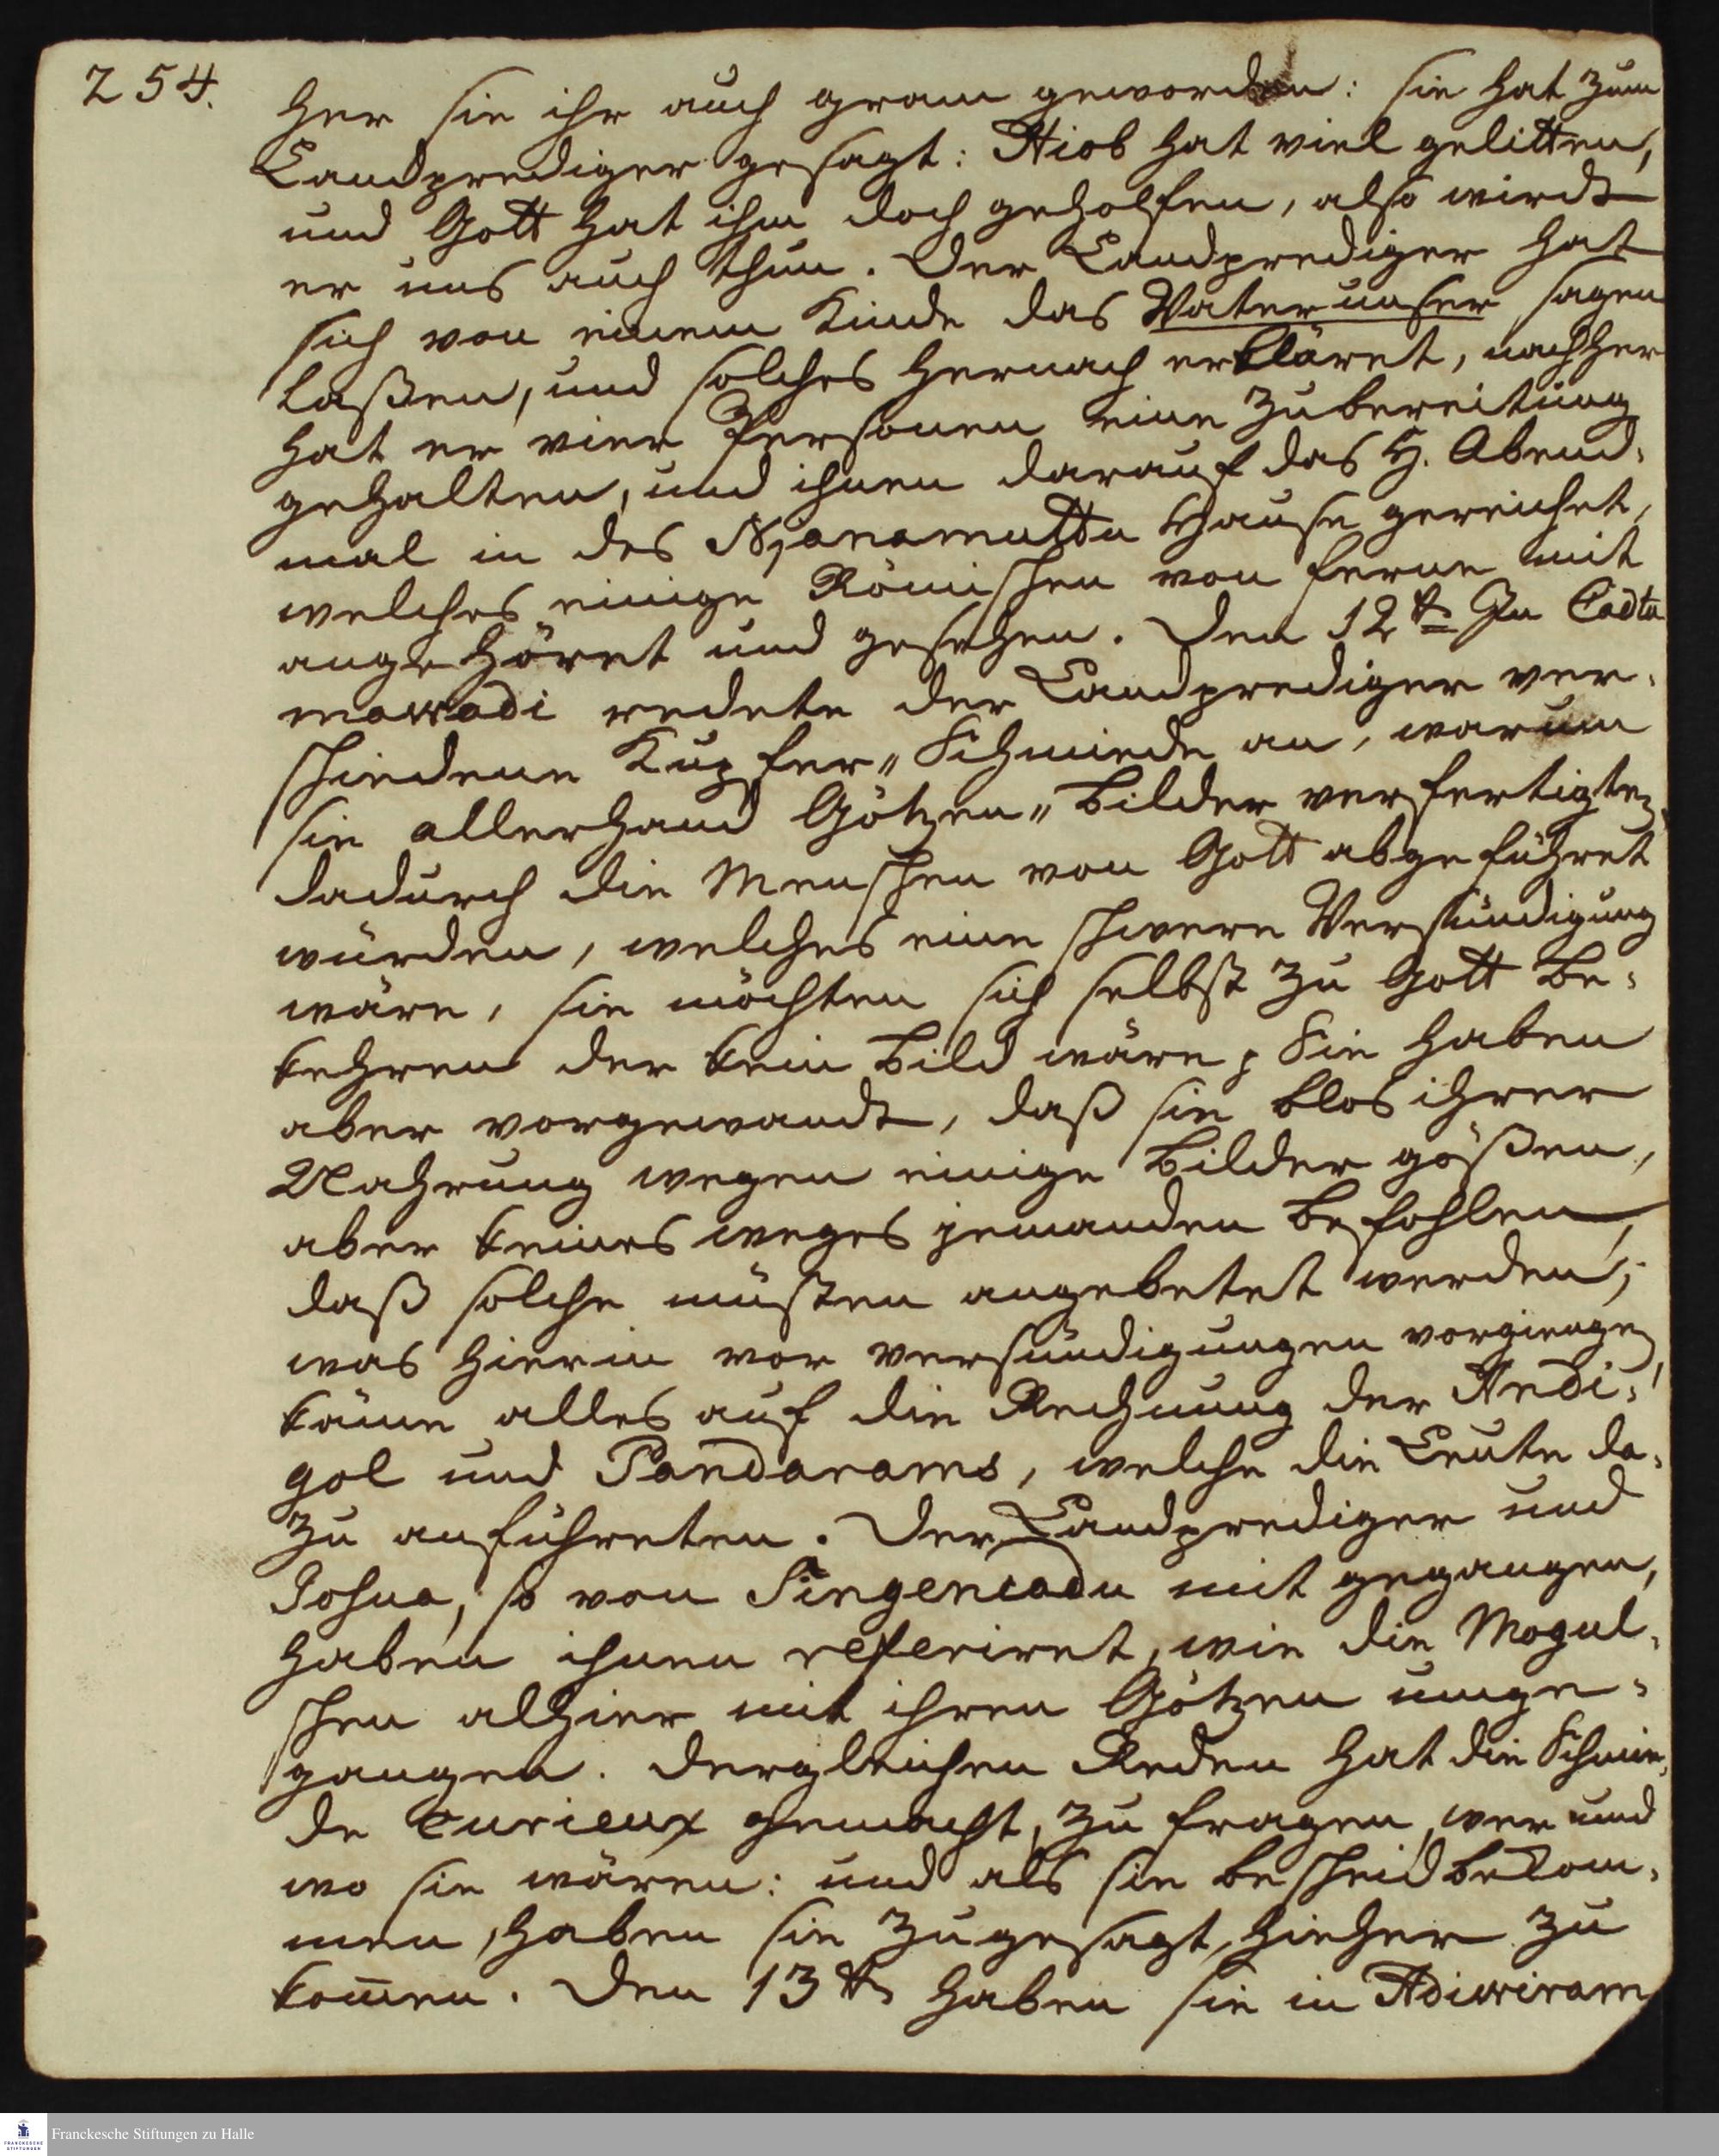 254.
her sie ihr auch gram geworden: sie hat zum
Landprediger gesagt: Hiob hat viel gelitten,
und Gott hat ihm doch geholfen, also wirdt
er uns auch thun. Der Landprediger hat
sich von einem Kinde das Vater unser sagen
laßen, und solches hernach erkläret, nachher
hat er vier Personen eine Zubereitung
gehalten, und ihnen darauf das H. Abend-
mal in des Njanamuttu Hause gereichet,
welches einige Römischen von ferne mit
angehöret und gesehen. Den 12ten In Cadtu
mawadi redete der Landprediger ver-
schiedene Kupfer„Schmiede an, warum
sie allerhand Götzen„Bilder verfertigten,
dadurch die Menschen von Gott abgeführet
würden, welches eine schwere Versündigung
wäre, sie möchten sich selbst zu Gott be-
kehren der kein Bild wäre; Sie haben
aber vorgewandt, daß sie blos ihrer
Nahrung wegen einige Bilder gößen,
aber keines weges jemanden befohlen,
daß solche müsten angebetet werden;
was hierin vor versündigungen vorgienge,
käme alles auf die Rechnung der Andi-
gol und Pandarams, welche die Leute da-
zu anführeten. Der Landprediger und
Josua, so von Singencadu mit gegangen,
haben ihnen referiret, wie die Mogul-
schen alhier mit ihren Götzen umge-
gangen. dergleichen Reden hat die Schmie-
de curieux gemacht, zu fragen, wer und
wo sie wären: und als sie bescheid bekom-
men, haben sie zugesagt, hieher zu
kom̅en. Den 13ten haben sie in Adiwiram
Franckesche Stiftungen zu Halle